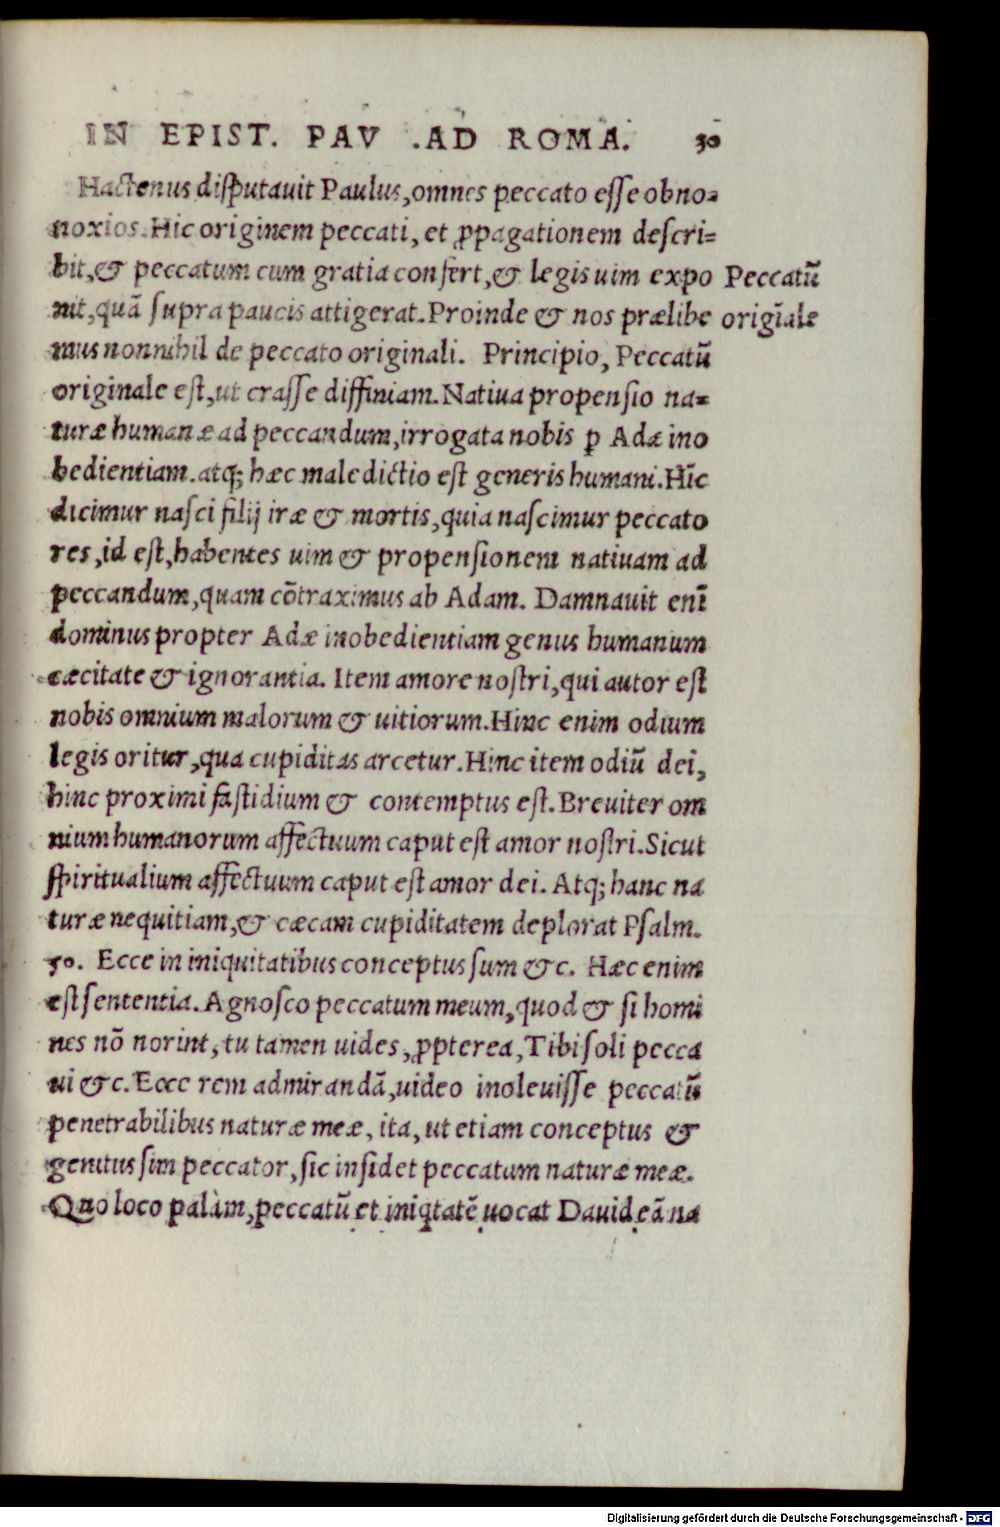 IN EPIST. PAV .AD ROMA. 30
Hactenus disputauit Paulus,omnes peccato esse obno=
noxios.Hic originem peccati, et ꝓpagationem descri=
bit,& peccatum cum gratia confert,& legis uim expo
nit,quã supra paucis attigerat.Proinde & nos prælibe
mus nonnihil de peccato originali. Principio, Peccatũ
originale est,ut crasse diffiniam.Natiua propensio na=
turæ humanæ ad peccandum,irrogata nobis ꝑ Adæ ino
bedientiam.atq; hæc maledictio est generis humani.Hĩc
dicimur nasci filij iræ & mortis,quia nascimur peccato
res,id est,habentes uim & propensionem natiuam ad
peccandum,quam cõtraximus ab Adam. Damnauit enĩ
dominus propter Adæ inobedientiam genus humanum
cæcitate & ignorantia. Item amore nostri,qui autor est
nobis omnium malorum & uitiorum.Hinc enim odium
legis oritur,qua cupiditas arcetur.Hinc item odiũ dei,
hinc proximi fastidium & contemptus est.Breuiter om
nium humanorum affectuum caput est amor nostri.Sicut
spiritualium affectuum caput est amor dei. Atq; hanc na
turæ nequitiam,& cæcam cupiditatem deplorat Psalm.
50. Ecce in iniquitatibus conceptus sum &c. Hæc enim
est sententia.Agnosco peccatum meum,quod & si homi
nes nõ norint,tu tamen uides,ꝓpterea,Tibi soli pecca
ui &c.Ecce rem admirandã,uideo inoleuisse peccatũ
penetrabilibus naturæ meæ, ita,ut etiam conceptus &
genitus sim peccator,sic insidet peccatum naturæ meæ.
Quo loco palàm,peccatũ et iniqtatẽ uocat Dauid eã na
Peccatũ
origĩale
Digitalisierung gefördert durch die Deutsche Forschungsgemeinschaft - DFG